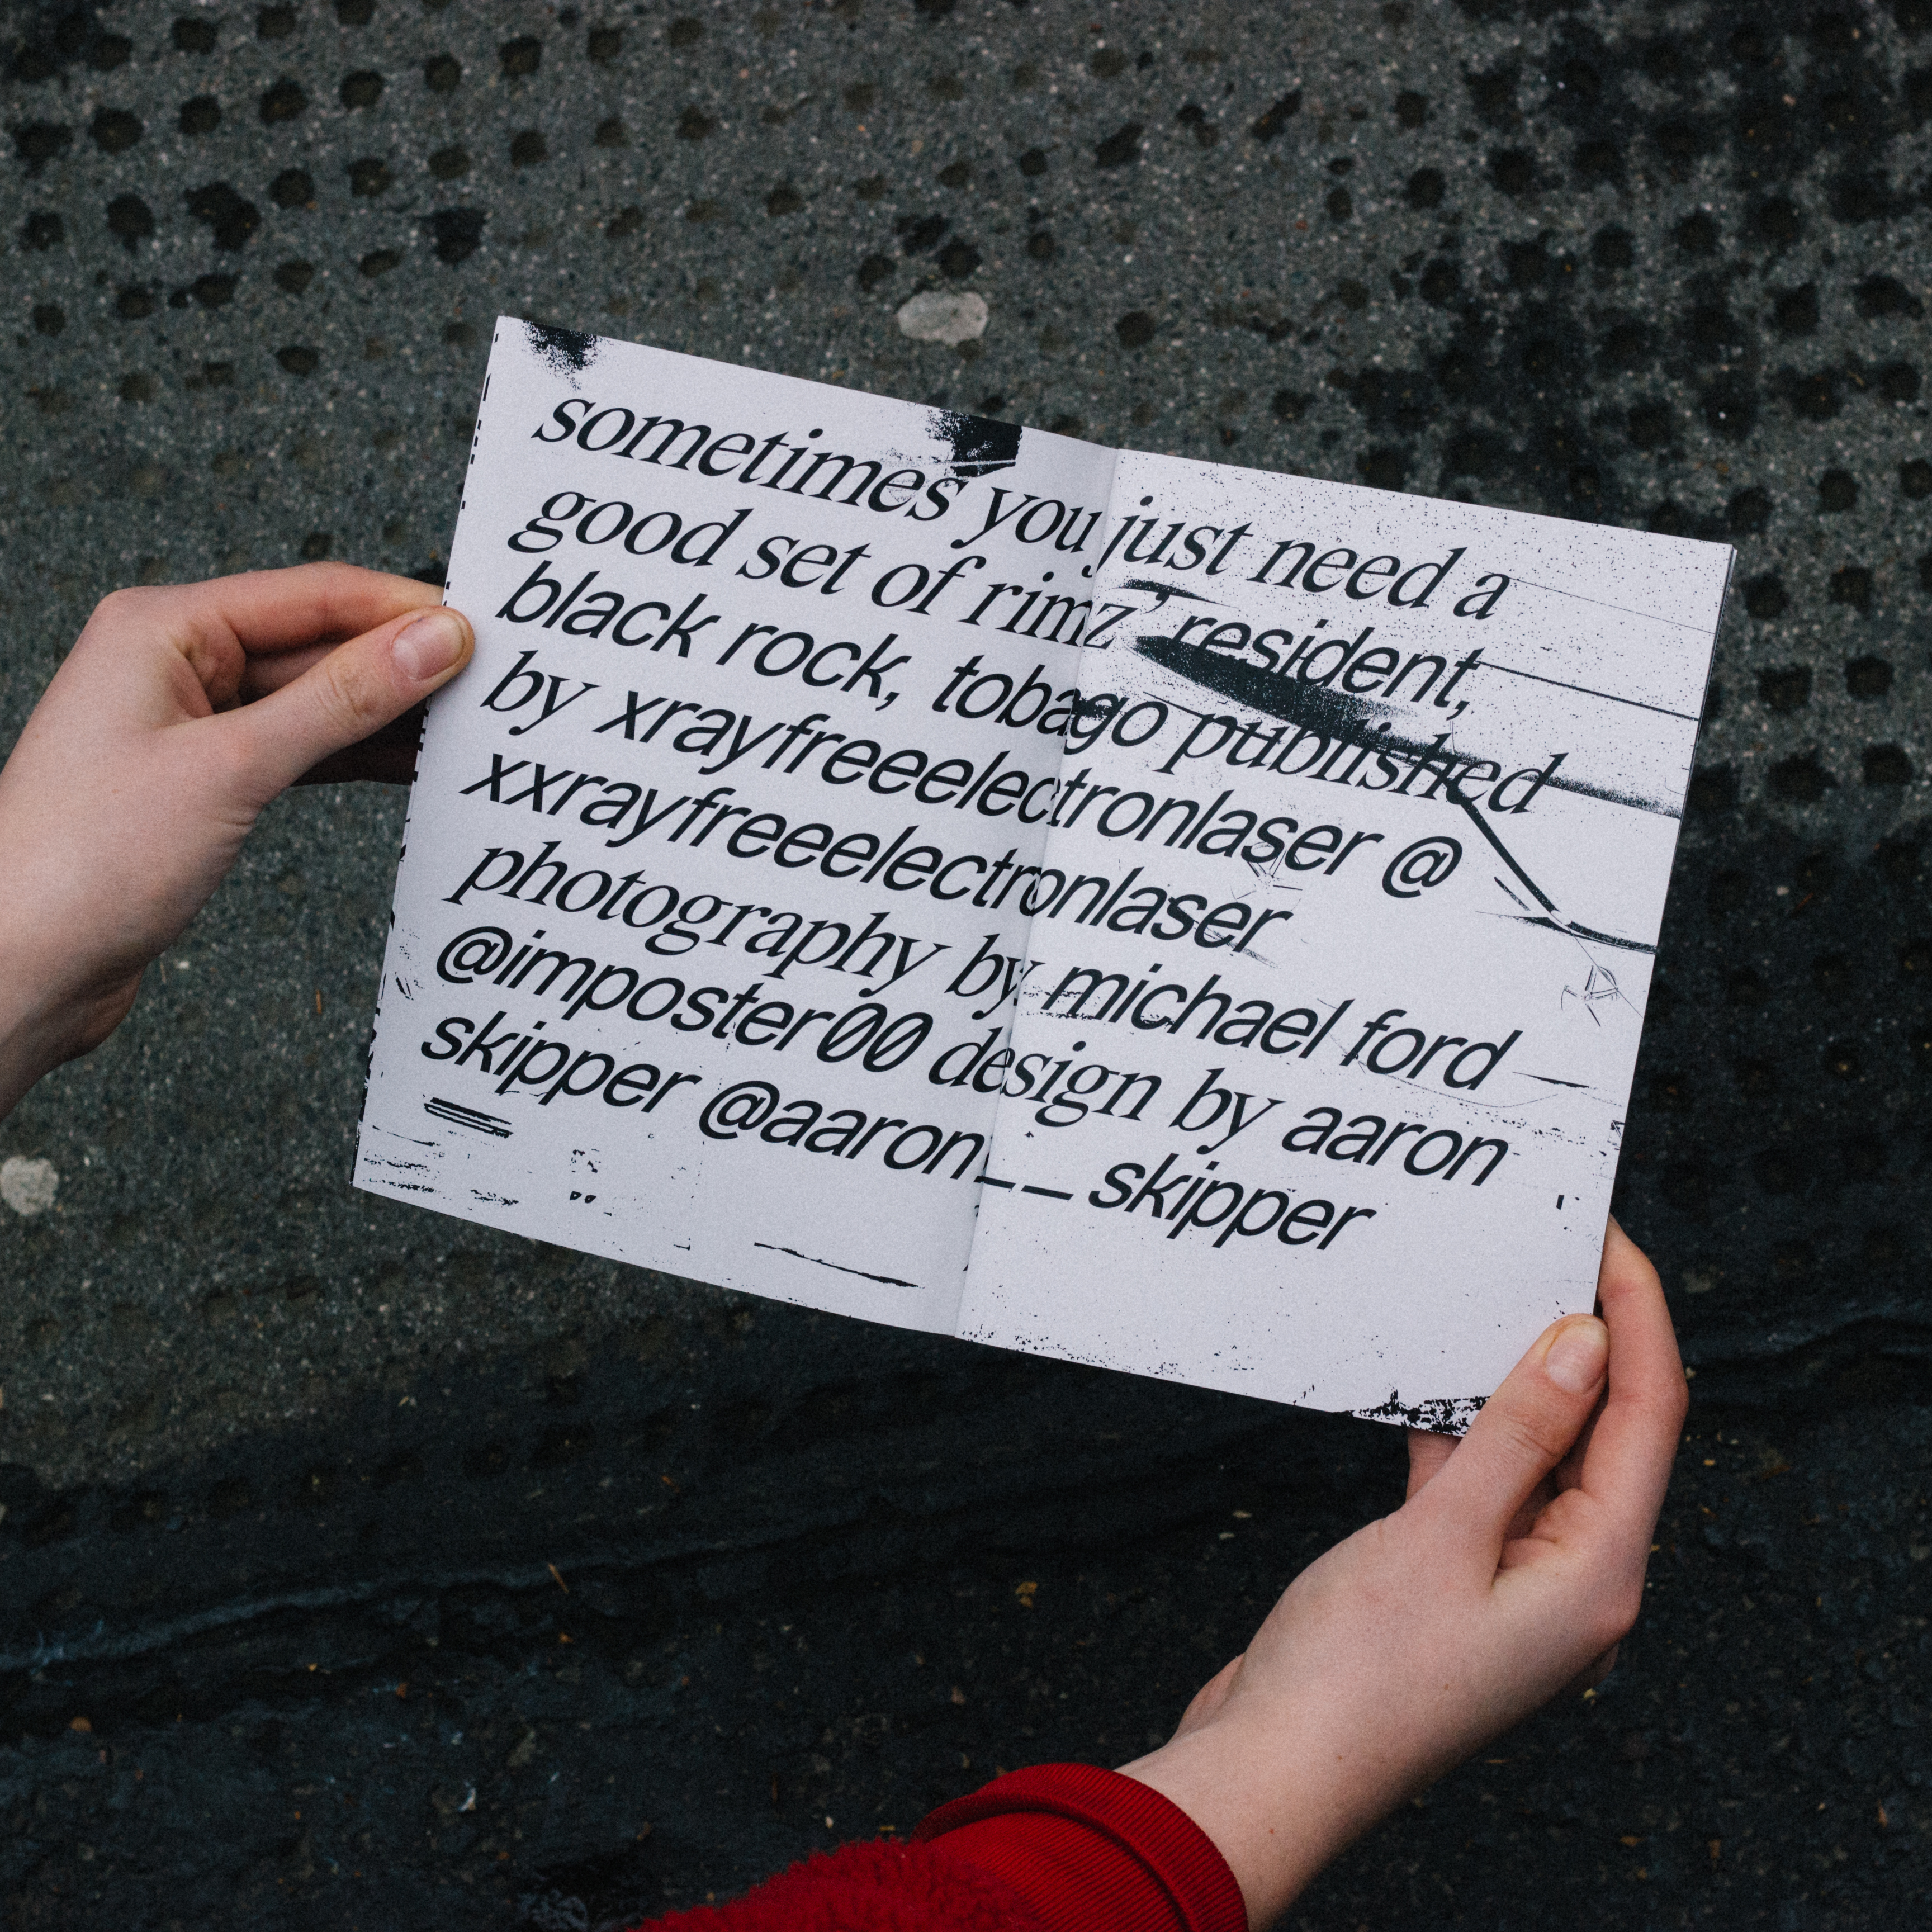 sometimes you just need a
good set of rimz’ resident,
black rock, tobago published
by xrayfreeelectronlaser @
xxrayfreeelectronlaser
photography by michael ford
@imposter00 design by aaron
skipper @aaron__skipper